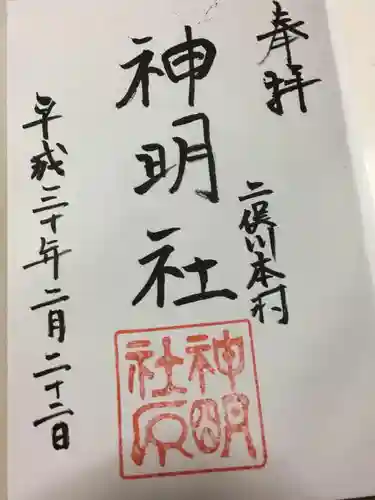 奉拝
二俣川本村
神明社
平成三十年二月二十二日
神明
社印